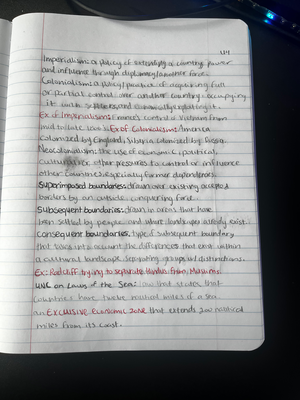 Imperialism: a policy of extending a country power
and influence through diplomacy/another force.
Colonialism: a policy/practice of acquiring full
or partial control over another country, occupying
it with settlers, and economically exploiting it.
Ex of Imperialism: France's control of Vietnam from
mid to late 1800s. Ex of Colonialism: America
colonized by England, Siberia colonized by Russia.
Neocolonialism: the use of economic, political,
cultural or other pressures to control or influence
other countries, especially former dependencies.
Superimposed boundaries: drawn over existing accepted
borders by an outside conquering force.
Subsequent boundaries: drawn in areas that have
been settled by people and where landscapes already exist.
Consequent boundaries, type of subsequent boundary
that takes into account the differences that exist within
a cultural landscape separating groups w/ distinctions.
Ex: Radcliff trying to separate Hindus from Muslims.
on Laws of the Sea: law that states that
countries have twelve nautical miles of a sea
an Exclusive Economic Zone that extends 200 nautical
miles from its coast.